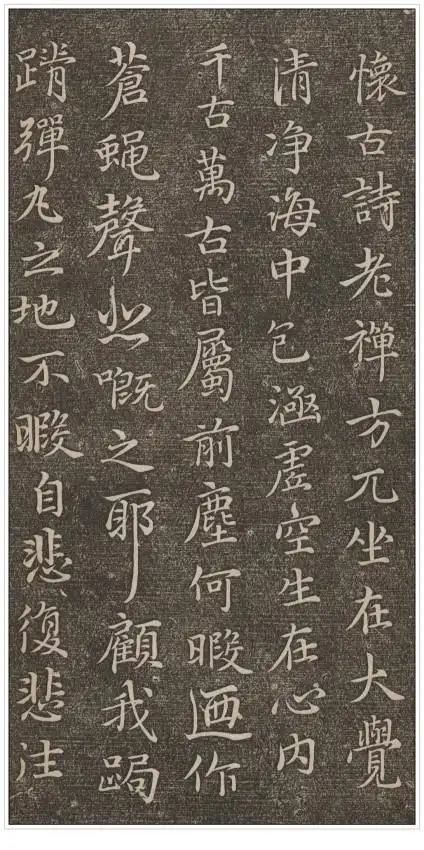 懷古詩老禪方兀坐在大覺
清净海中包涵虚空生在心内
千古萬古皆屬前塵何暇迺作
蒼蝇聲悲嘅之耶顧我跼
蹐彈丸之地不暇自悲復悲注